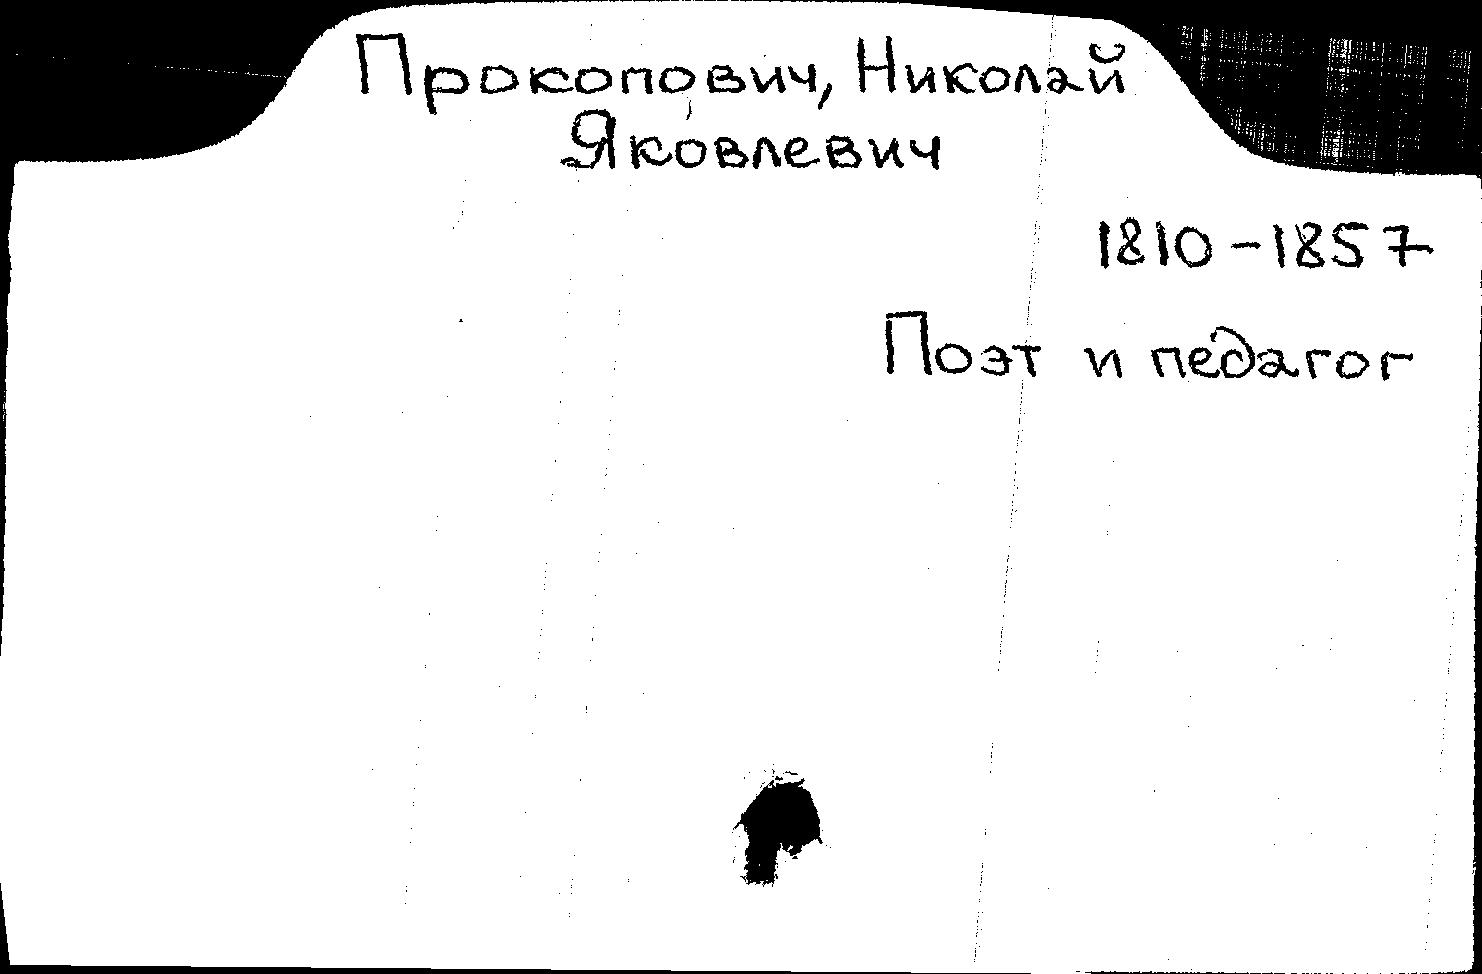 Прокопович, Николай
Яковлевич
1810-1857
Поэт и педагог